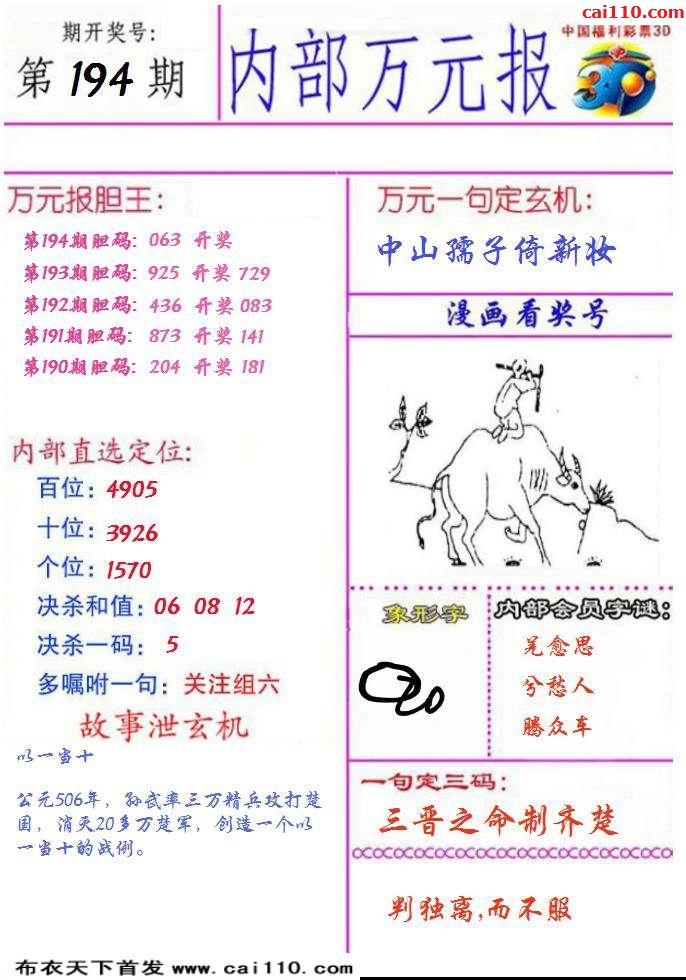 cai110.com
期开奖号:
第 194 期
内部万元报
中国福利彩票3D
3D
万元报胆王:
第194期胆码: 063 开奖
第193期胆码: 925 开奖 729
第192期胆码: 436 开奖 083
第191期胆码: 873 开奖 141
第190期胆码: 204 开奖 181
万元一句定玄机:
中山孺子倚新妆
漫画看奖号
内部直选定位:
百位: 4905
十位: 3926
个位: 1570
决杀和值: 06 08 12
决杀一码: 5
多嘱咐一句: 关注组六
故事泄玄机
以一当十
公元506年, 孙武率三万精兵攻打楚
国, 消灭20多万楚军, 创造一个以
一当十的战例。
象形字
内部会员字谜:
羌愈思
兮愁人
腾众车
一句定三码:
三晋之命制齐楚
判独离,而不服
布衣天下首发 www.cai110.com